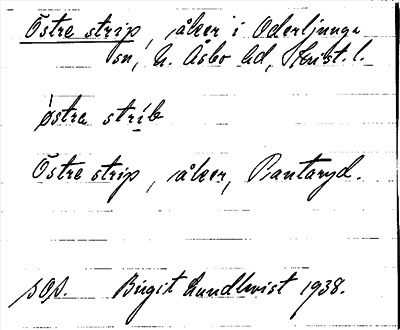 Östre strip, åker i Oderljunga
sn, N. Åsbo hd, Krist. l.
östra strib
Östre strip, åker, Pantaryd.
sop. Birgit Lundkvist 1938.